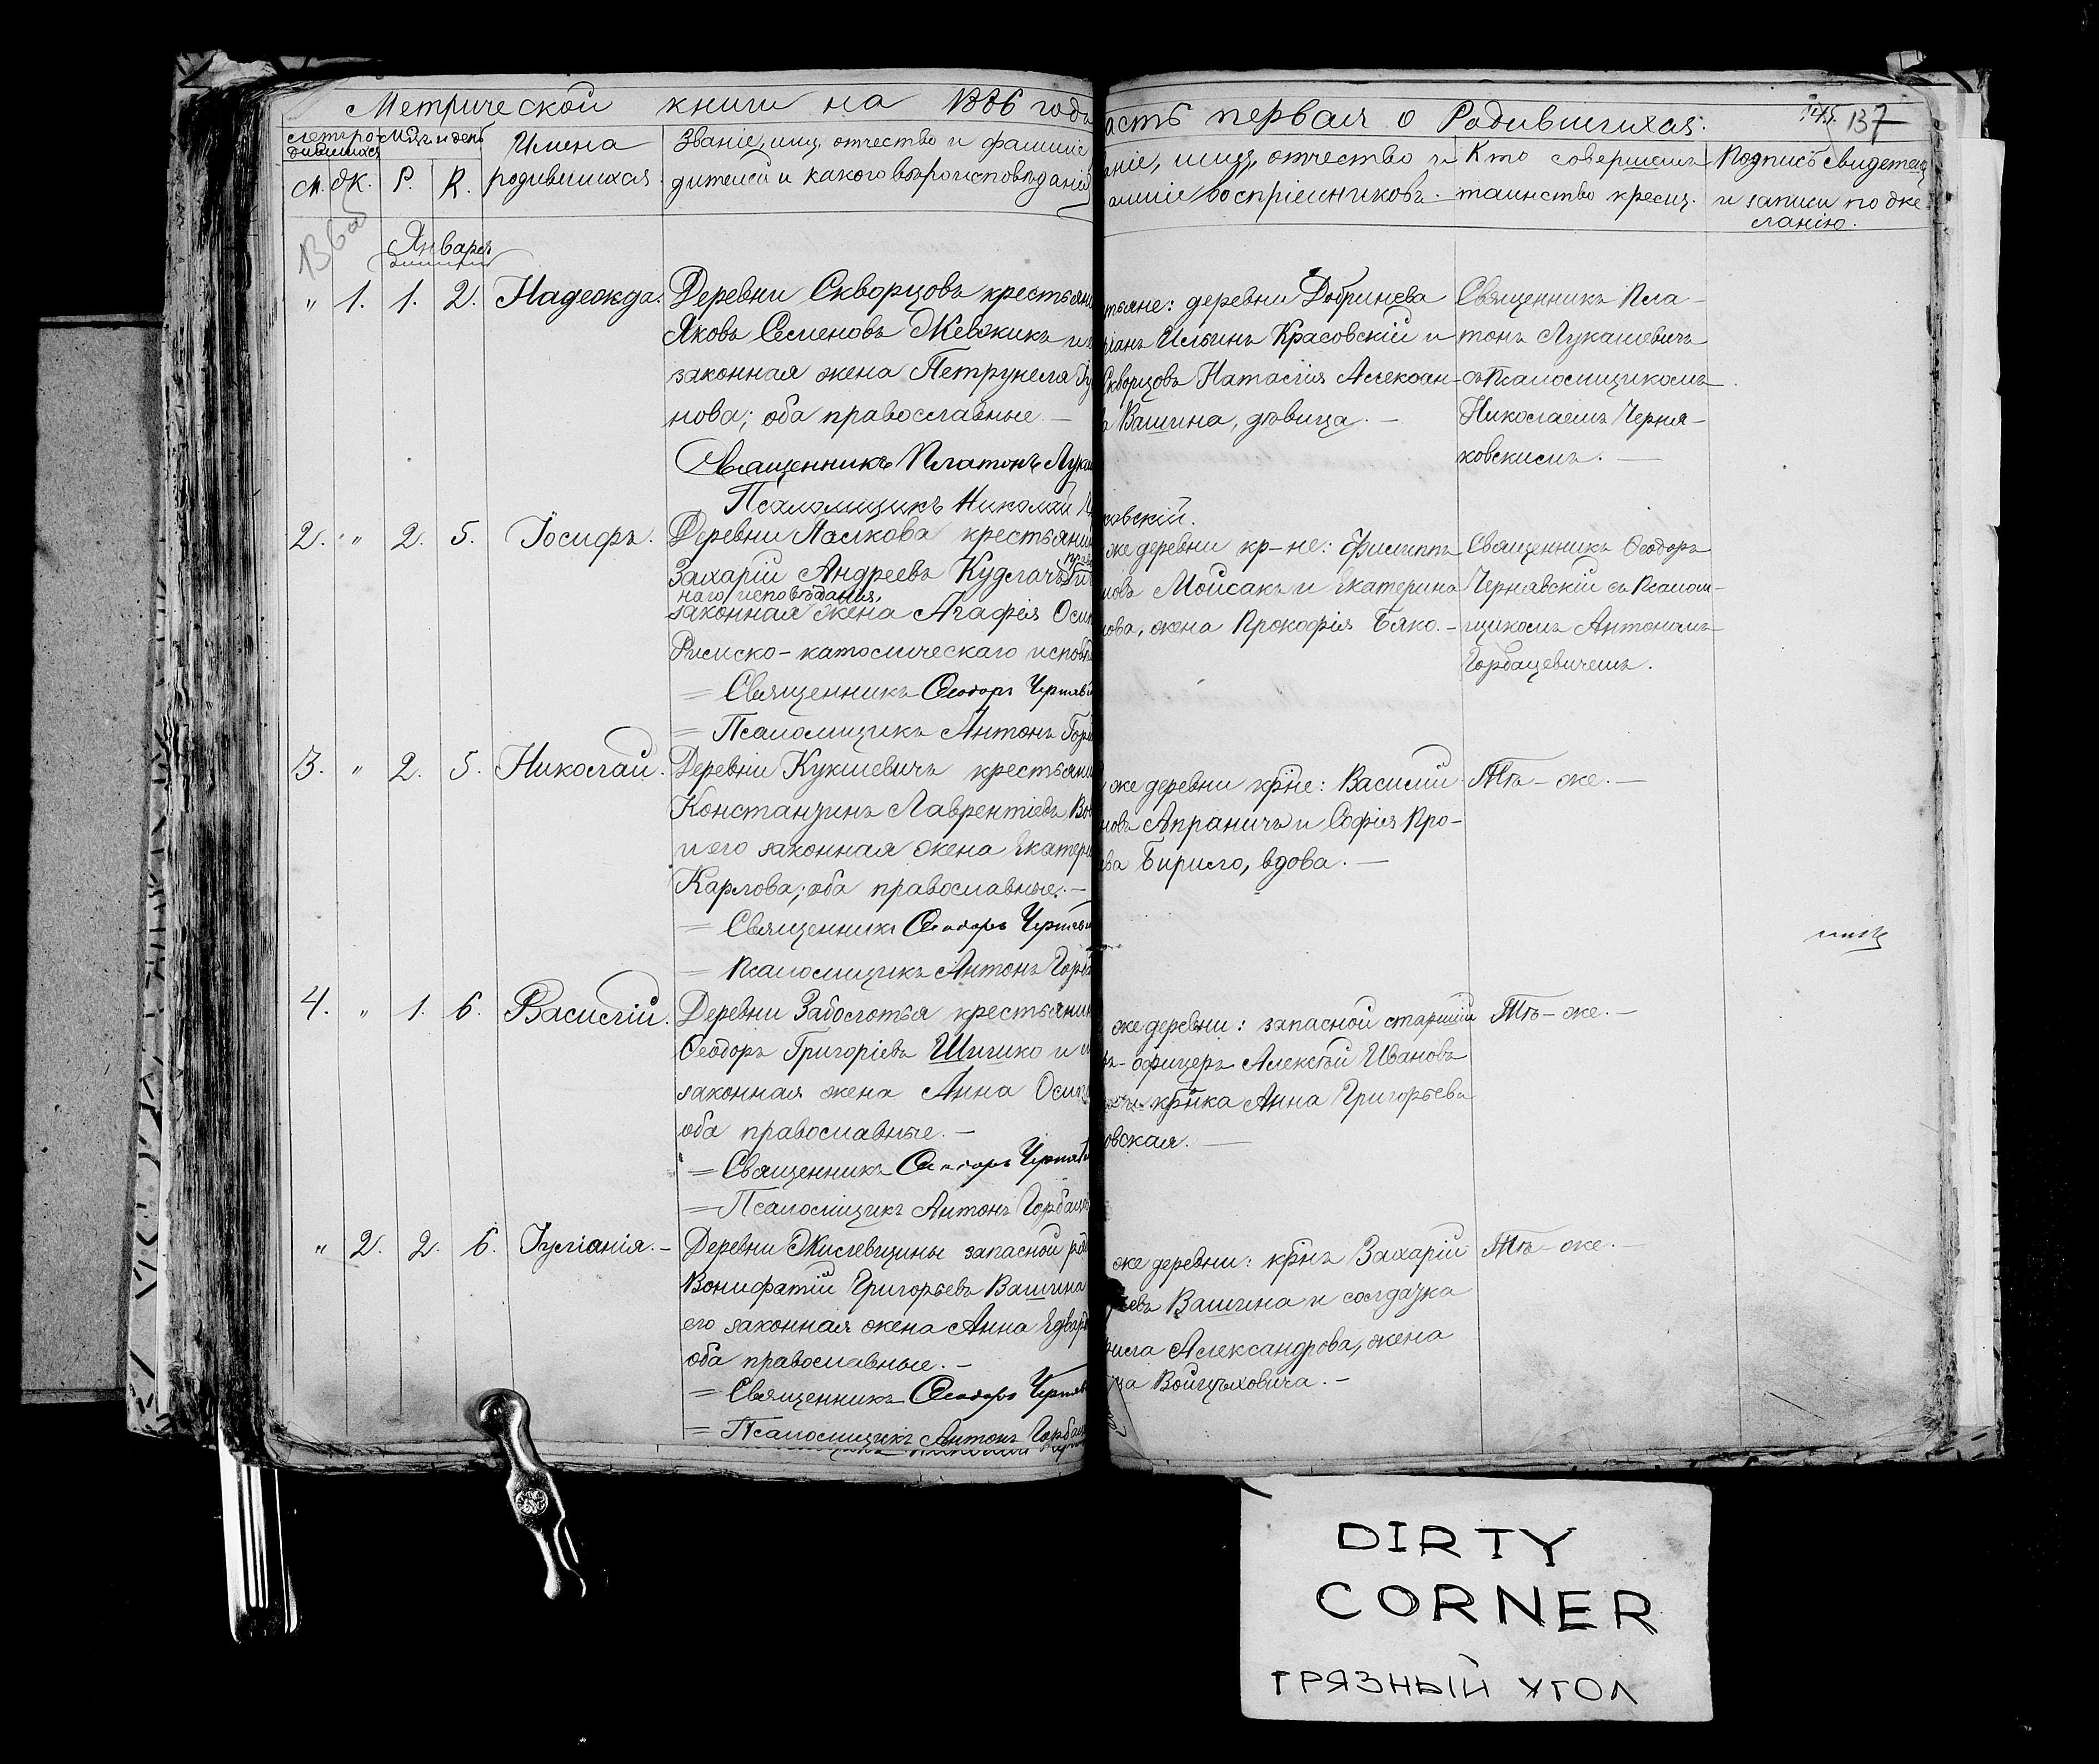 Метрической книги на 1886 года
асть первая о Родившихся.
145 137
Счетъ ро-
дившихся
Мѣц. и день
М. Ж. Р. К.
Имена
родившихся.
Званіе, имя, отчество и фамиліе
дителей и какого вѣроисповѣданія
аніе, имя, отчество и
амиліе воспріемниковъ.
Кто совершилъ
таинство крещ.
Подпись свидетел
и записи по же-
ланію.
136об
Января
" 1. 1. 2. Надежда.
Деревни Скворцовъ крестьян
Яковъ Семеновъ Жевжикъ и
законная жена Петрунеля
нова; оба православные. —
Священникъ Платонъ Лука
Псаломщикъ Николай
тьяне: деревни Добринева
ріанъ Ильинъ Красовскій и
Скворцовъ Наталія Алексан-
Вашина, дѣвица. —
ковскій.
Священникъ Пла-
тонъ Лукашевичъ
съ Псаломщикомъ
Николаемъ Черня-
ковскимъ. —
2. " 2. 5. Іосифъ.
Деревни Маликова крестьяни
Захарій Андреевъ Кудлачъ
наго исповѣданія,
законная жена Агафія Оси
Римско-католическаго исповѣ
= Священникъ Ѳеодоръ Чернявс
= Псаломщикъ Антонъ Горб
же деревни кр-не: Филиппъ
новъ Мойсакъ и Екатерина
нова, жена Прокофія Бяко. —
Священникъ Ѳеодоръ
Чернявскій съ Псалом-
щикомъ Антономъ
Горбацевичемъ.
3. " 2. 5. Николай.
Деревни Кукшевичъ крестьяни
Константинъ Лаврентіевъ Во
и его законная жена Екатери
Карлова; оба православные. —
= Священникъ Ѳеодоръ Чернявс
= Псаломщикъ Антонъ Горба
же деревни кр-не: Василій
новъ Апраничъ и Софія Про-
ва Бирило, вдова. —
Тѣ-же. —
4. " 1. 6. Василій.
Деревни Заболотья крестьянин
Ѳеодоръ Григоріевъ Шишко и
законная жена Анна Осип
оба православные. —
= Священникъ Ѳеодоръ Чернявс
= Псаломщикъ Антонъ Горбац
же деревни: запасной старшій
ъ-офицеръ Алексѣй Ивановъ
и кр-нка Анна Григорьева
овская. —
Тѣ-же. —
" 2. 2. 6. Іуліанія. —
Деревни Жилевщины запасной ря
Вонифатій Григорьевъ Вашина
его законная жена Анна Едвард
оба православные. —
= Священникъ Ѳеодоръ Чернявс
= Псаломщикъ Антонъ Горбац
же деревни: кр-нъ Захарій
ьевъ Вашина и солдатка
Александрова, жена
Войцѣховича. —
Тѣ-же. —
DIRTY
CORNER
ГРЯЗНЫЙ УГОЛ